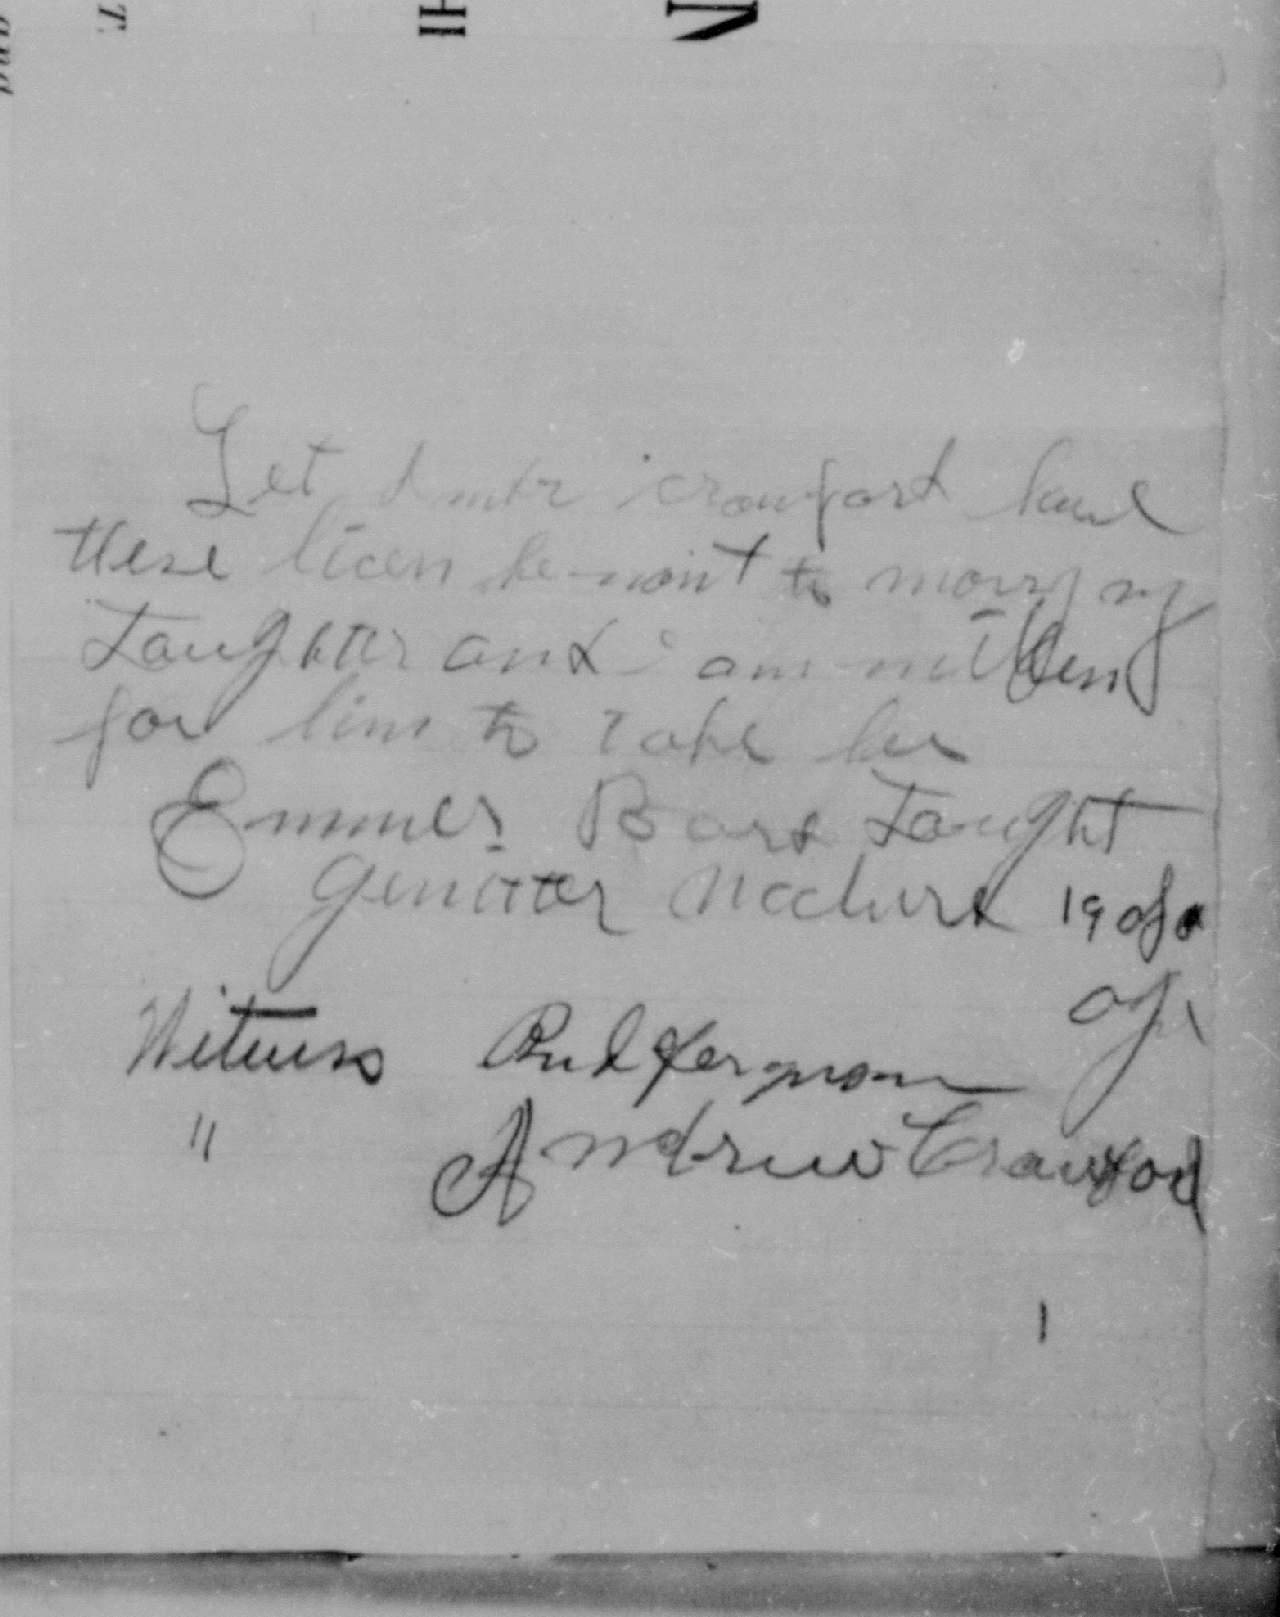 T.
HI
N
Let crawford have
these licen he wont to marry my
daughter and i am willen
for him to take her
Emmer Bard daught
Genitter Mcclure 19 of a
of
Witness Rul Ferguson
" Andrew Crawford